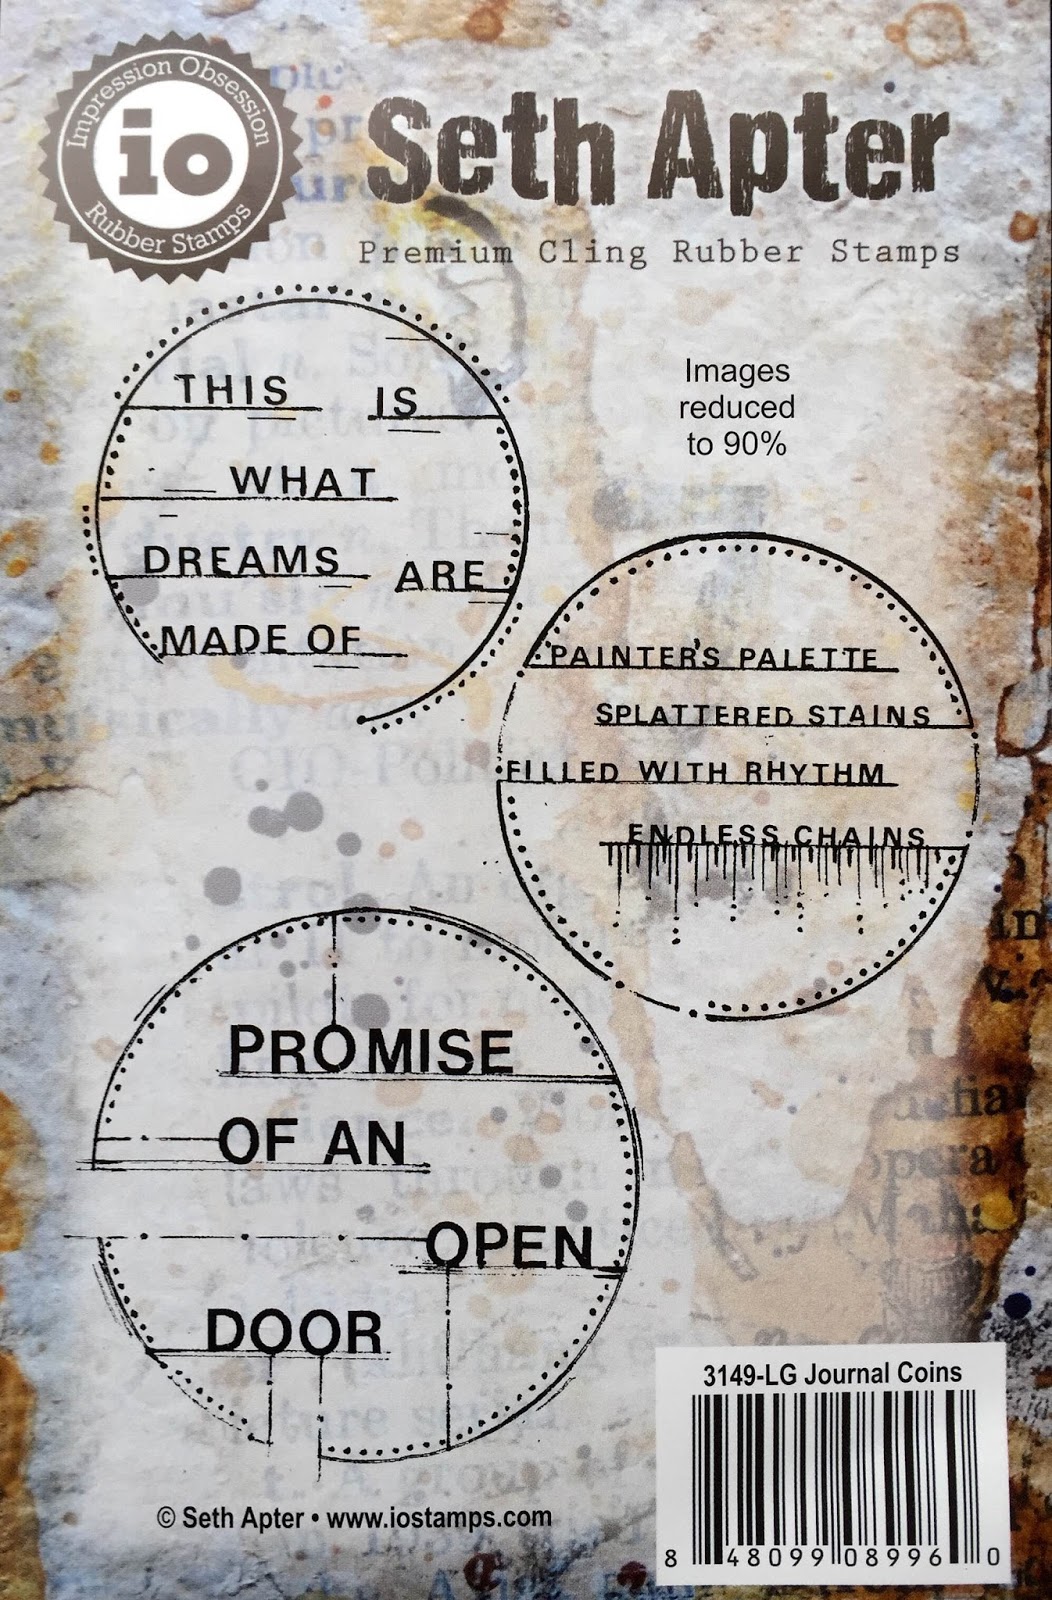 Impression Obsession
io
Rubber Stamps
Seth Apter
Premium Cling Rubber Stamps
Images
reduced
to 90%
THIS IS
WHAT
DREAMS ARE
MADE OF
PAINTER'S PALETTE
SPLATTERED STAINS
FILLED WITH RHYTHM
ENDLESS CHAINS
PROMISE
OF AN
OPEN
DOOR
3149-LG Journal Coins
8 48099 08996 0
© Seth Apter • www.iostamps.com